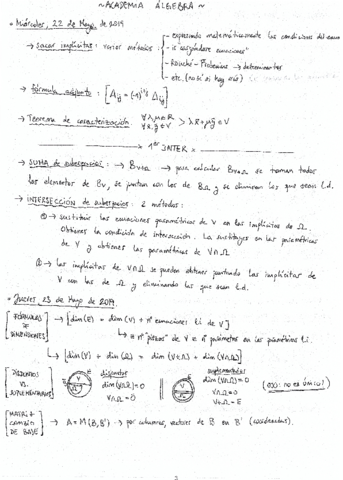 ~ACADEMIA ÁLGEBRA~
• Miércoles, 22 de Mayo de 2019
→ sacar implícitas: varios métodos:
- expresando matemáticamente las condiciones del
- ir cargándose ecuaciones
- Rouché - Frobenius → determinantes
- etc. (no sé si hay más)
→ fórmula adjunto: [Aij = (-1)^(i+j) Δij]
→ Teorema de caracterización: ∀λ,μ∈R
∀x̄,ȳ∈V > λx̄+μȳ∈V
1er INTER
→ SUMA de subespacios: → → para calcular se toman todos
los elementos de Bv, se juntan con los de BΩ y se eliminan los que sean l.d.
→ INTERSECCIÓN de subespacios: 2 métodos:
① → sustituir las ecuaciones paramétricas de V en las implícitas de Ω.
Obtienes la condición de intersección. La sustituyes en las paramétricas
de V y obtienes las paramétricas de V∩Ω
② → las implícitas de V∩Ω se pueden obtener juntando las implícitas de
V con las de Ω y eliminando las que sean l.d.
• Jueves, 23 de Mayo de 2019.
[FÓRMULAS DE DIMENSIONES] → [dim(E) = dim(V) + nº ecuaciones l.i. de V]
nº de V = nº parámetros en las paramétricas l.i.
→ [dim(V) + dim(Ω) = dim(V+Ω) + dim(V∩Ω)]
[DISJUNTOS VS. SUPLEMENTARIOS]
disjuntos
dim(V∩Ω)=0
V∩Ω=0
suplementarios
dim(V∩Ω)=0
V∩Ω=0
V+Ω=E
(OJO: no es único!)
[MATRIZ CAMBIO DE BASE] → A = M(B,B') → por columnas, vectores de B en B' (coordenadas).